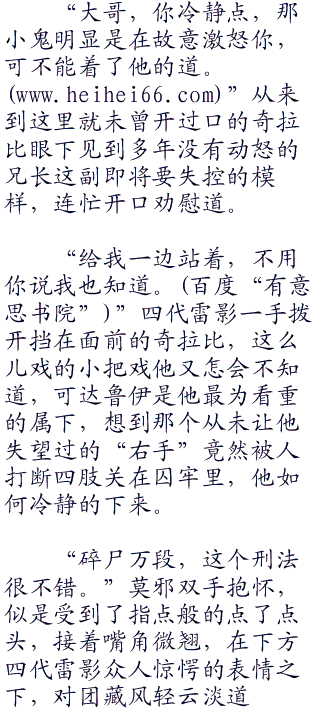 “大哥，你冷静点，那
小鬼明显是在故意激怒你，
可不能着了他的道。
(www.heihei66.com)”从来
到这里就未曾开过口的奇拉
比眼下见到多年没有动怒的
兄长这副即将要失控的模
样，连忙开口劝慰道。
“给我一边站着，不用
你说我也知道。(百度“有意
思书院”)”四代雷影一手拨
开挡在面前的奇拉比，这么
儿戏的小把戏他又怎会不知
道，可达鲁伊是他最为看重
的属下，想到那个从未让他
失望过的“右手”竟然被人
打断四肢关在囚牢里，他如
何冷静的下来。
“碎尸万段，这个刑法
很不错。”莫邪双手抱怀，
似是受到了指点般的点了点
头，接着嘴角微翘，在下方
四代雷影众人惊愕的表情之
下，对团藏风轻云淡道